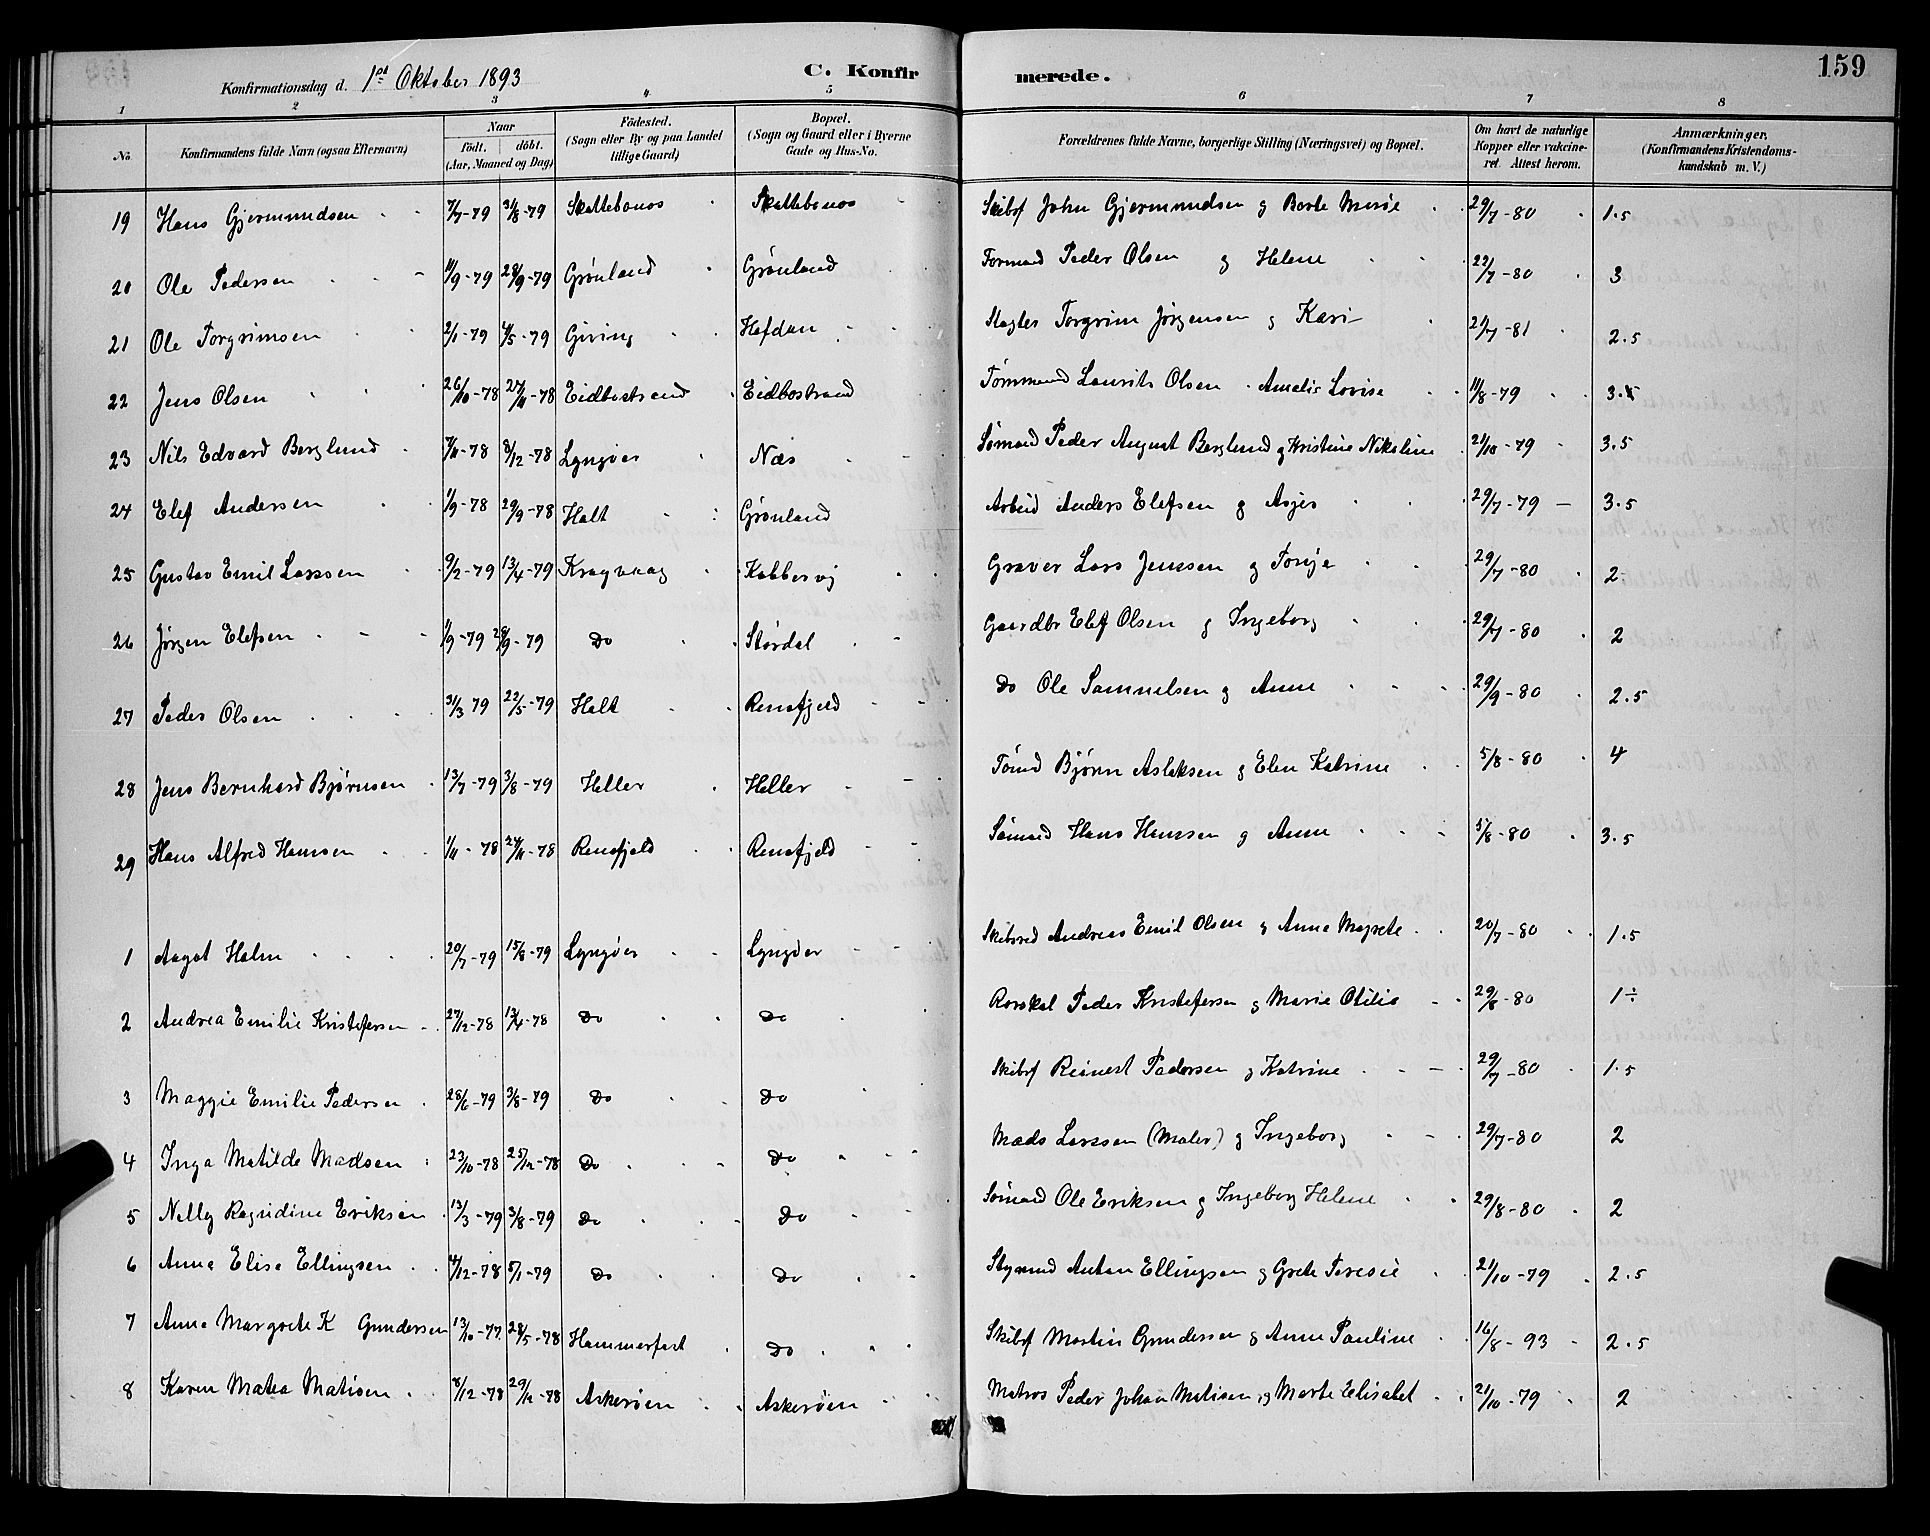 159
Konfirmationsdag d. 1ste Oktober 1893 C. Konfirmerede.
1 2 3 4 5 6 7 8
No. Konfirmandens fulde Navn (ogsaa Efternavn) Naar født. døbt. (Aar, Maaned og Dag) Födested. (Sogn eller By og paa Landet tillige Gaard) Bopæl. (Sogn og Gaard eller i Byerne Gade og Hus-No. Forældrenes fulde Navne, borgerlige Stilling (Næringsvei) og Bopæl. Om havt de naturlige Kopper eller vakcineret. Attest herom. Anmærkninger. (Konfirmandens Kristendomskundskab m. V.)
19 Hans Gjermundsen 7/7-79 31/8-79 Skattebonos Skattebonos Skibsf John Gjermundsen g Borte Marie 29/7-80 1.5
20 Ole Pedersen 11/9-79 28/9-79 Grönland Grönland Formand Peder Olsen g Helene 22/7-80 3
21 Ole Torgrimsen 2/1-79 4/5-79 Giving Hafdan Slagter Torgrim Jörgensen g Kari 21/7-81 2.5
22 Jens Olsen 26/10-78 27/11-78 Eidbostrand Eidbostrand Tömmand Laurits Olsen Amalie Lovise 11/8-79 3.5
23 Nils Edvard Berglund 7/11-78 8/12-78 Lyngöer Næs Sömand Peder August Berglund g Kristine Nikoline 21/10-79 3.5
24 Elef Andersen 1/9-78 29/9-78 Holt Grönland Arbeid Anders Elefsen g Asjer 29/7-79 3.5
25 Gustav Emil Larssen 9/2-79 13/4-79 Kragvaag Kobbervig Graver Lars Jenssen g Torije 29/7-80 2
26 Jörgen Elefsen 1/9-79 28/9-79 Do Stördal Gaardbr Elef Olsen g Ingeborg 29/7-80 2
27 Peder Olsen 31/3 79 22/5-79 Holt Rensfjeld Do Ole Samuelsen g Anne 29/9-80 2.5
28 Jens Bernhard Bjørnsen 13/7-79 3/8-79 Heller Heller Tömd Bjørn Aslaksen g Elen Katrine 5/8-80 4
29 Hans Alfred Hanssen 1/11-78 24/11-78 Rensfjeld Rensfjeld Sömand Hans Hanssen g Anne 5/8-80 3.5
1 Aagot Holm 20/7-79 15/8-79 Lyngöer Lyngöer Skibsred Andreas Emil Olsen g Anne Magrete 20/7-80 1.5
2 Andrea Emilie Kristofersen 27/12-78 13/4-78 Do Do Rorskal Peder Kristofersen g Marie Otilie 29/8-80 1÷
3 Maggie Emilie Pedersen 28/6-79 3/8-79 Do Do Skibsf Reinert Pedersen g Katrine 29/7-80 1.5
4 Inga Matilde Madsen 23/10-78 25/12-78 Do Do Mads Larssen (Maler) g Ingeborg 29/7-80 2
5 Nelly Ragndine Eriksen 13/3-79 3/8-79 Do Do Sömand Ole Eriksen g Ingeborg Helene 29/8-80 2
6 Anna Elise Ellingsen 4/12-78 5/1-79 Do Do Styrmd Anton Ellingsen g Grete Teresie 21/10-79 2.5
7 Anne Margrete K Gundersen 13/10-77 28/5-78 Hammerfest Do Skibsf Martin Gundersen g Anne Pauline 16/8-93 2.5
8 Karen Matea Matisen 8/12-78 29/12-78 Askeröen Askeröen Matros Peder Johan Matisen g Marte Elisabet 21/10-79 2